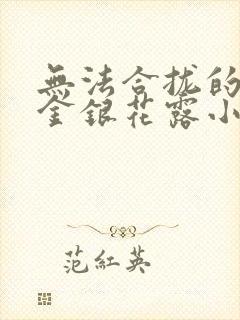 無法合拢的
金銀花露小
范紅英